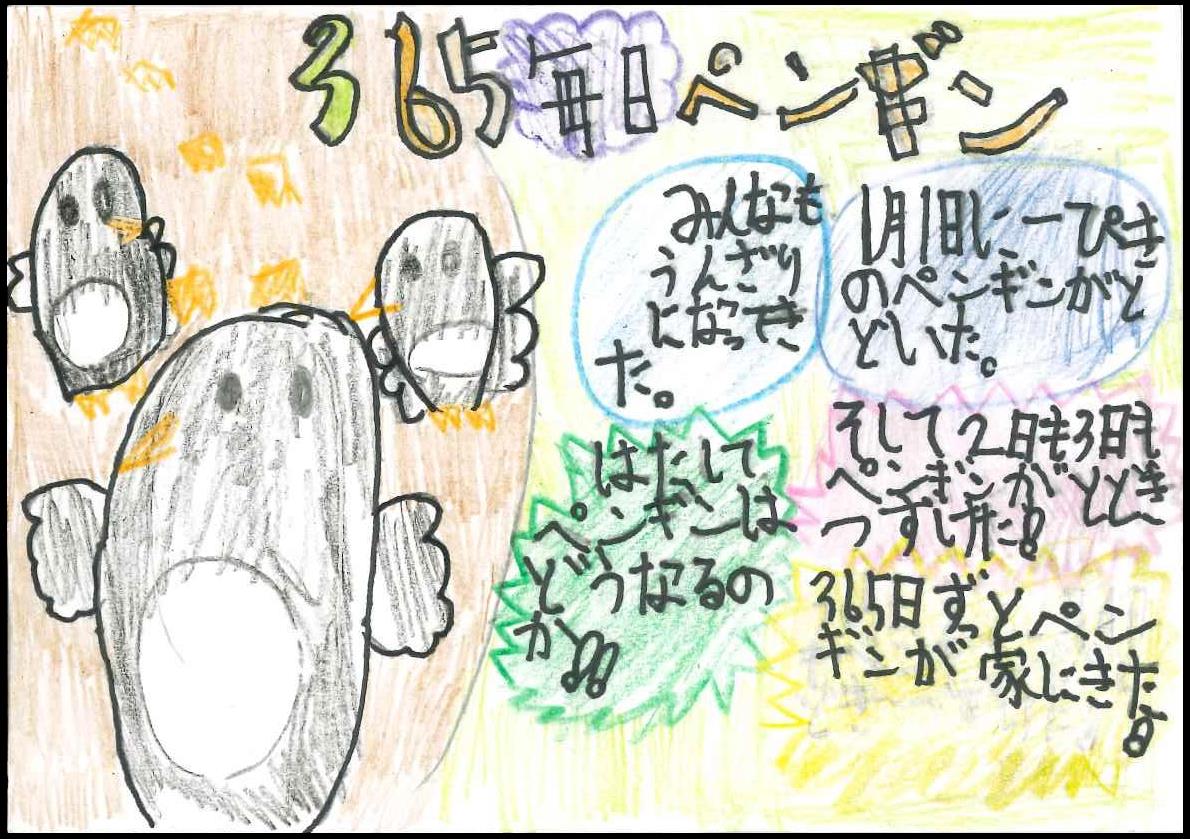 365毎日ペンギン
1月1日に、一ぴき
のペンギンがと
どいた。
そして2日も3日も
ペンギンがととき
つずけた!!
365日ずっとペン
ギンが家にきた!
みんなも
うんざり
になってき
た。
はたして
ペンギンは
どうなるの
か!!